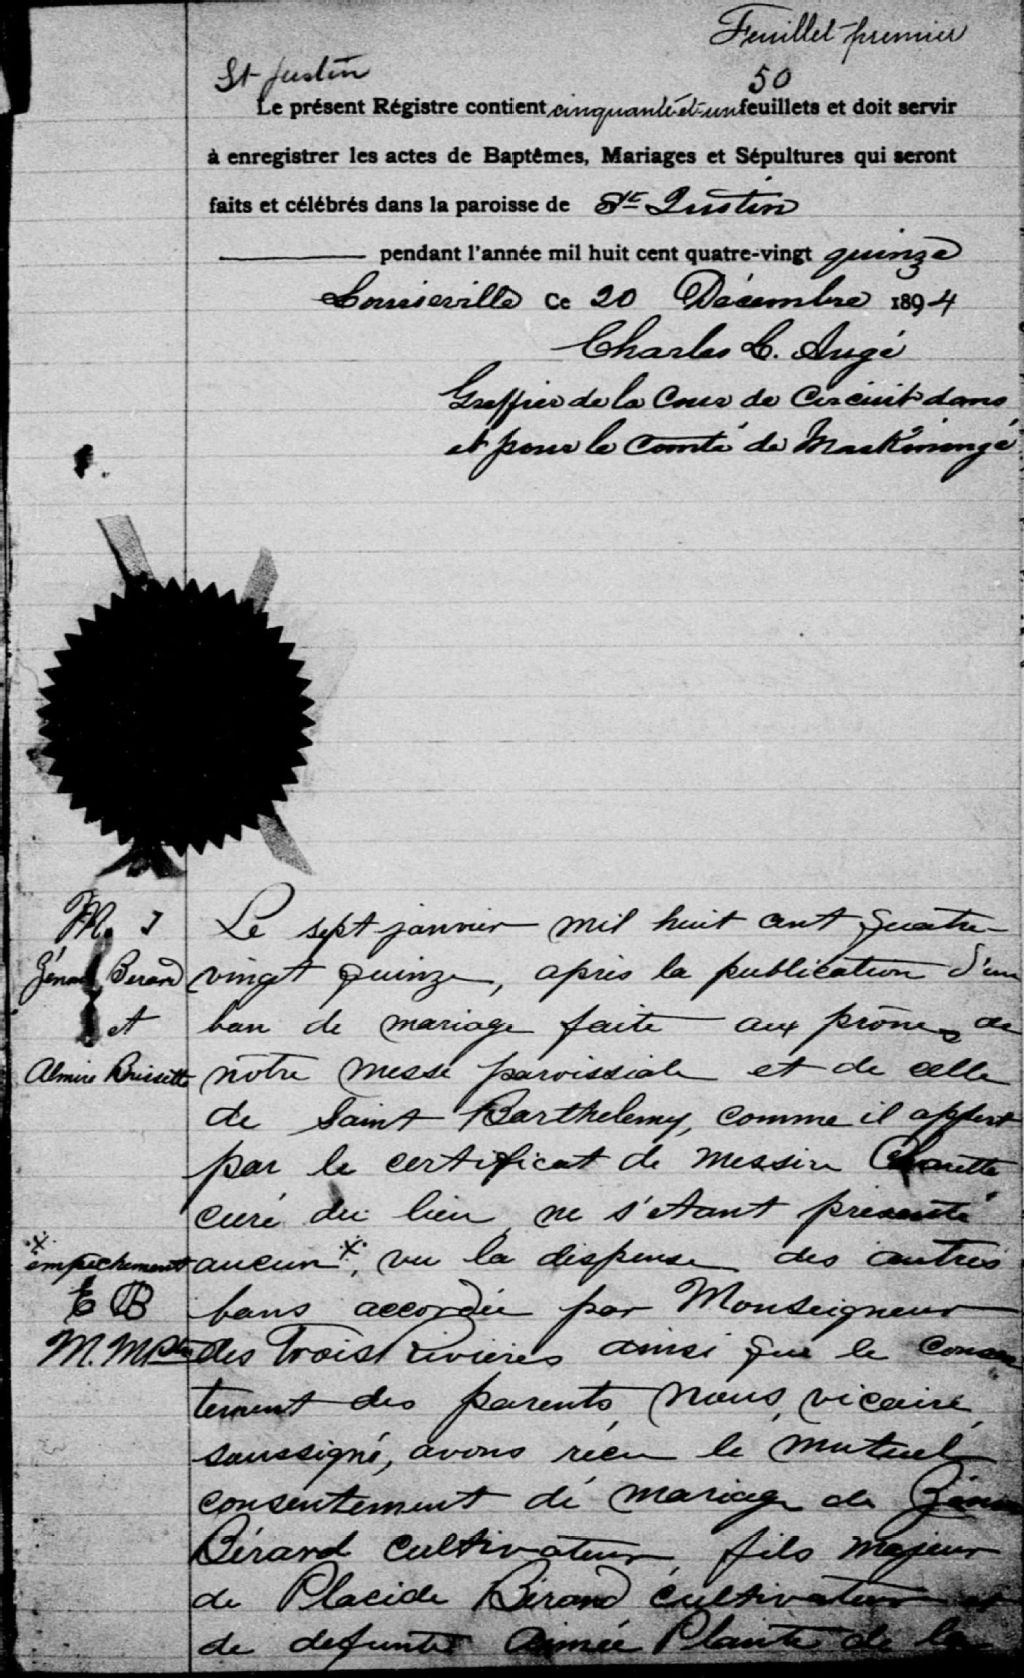 Feuillet premier
St Justin
50
Le présent Régistre contient cinquante-et-un feuillets et doit servir
à enregistrer les actes de Baptêmes, Mariages et Sépultures qui seront
faits et célébrés dans la paroisse de St Justin
pendant l'année mil huit cent quatre-vingt quinze
Louiseville Ce 20 Décembre 1894
Charles L. Augé
Greffier de la Cour de Circuit dans
et pour le Comté de Maskinongé
M. 1
Bérard
et
Almire Brissette
Le sept janvier mil huit cent quatre-
vingt quinze, après la publication d'un
ban de mariage faite aux prônes de
notre messe paroissiale et de celle
de Saint Barthelemy, comme il appert
par le certificat de messire
curé du lieu, ne s'étant présenté
aucun*, vu la dispense des autres
* empêchement
E B
M. M Ptre
bans accordée par Monseigneur
des Trois Rivières ainsi que le consen
tement des parents, nous, vicaire
soussigné, avons reçu le mutuel
consentement de mariage de
Bérard cultivateur, fils majeur
de Placide Bérard cultivateur et
de defunte Aimée Plante de la